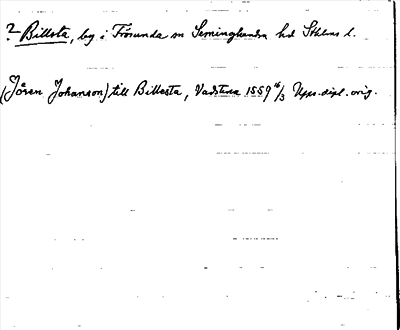 ? Billsta, by i Frösunda sn Seminghundra hd Sthlms l.
(Jören Johanson) till Billesta, Vadstena 1559 16/3 Upps. dipl. orig.